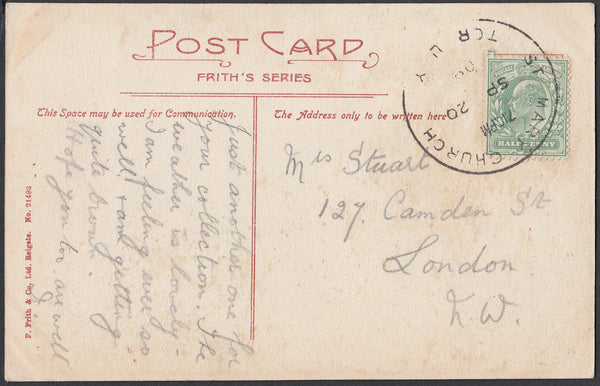 POST CARD
FRITH'S SERIES
This Space may be used for Communication.
The Address only to be written here
Just another one for
your collection. The
weather is lovely.
I am feeling ever so
well, & am getting
quite brown.
Hope you too are well
Mrs Stuart
127 Camden St
London
N.W.
ST MARYCHURCH
TOR
7 0 PM
SP 20
HALFPENNY
F. Frith & Co., Ltd. Reigate. No. 21496